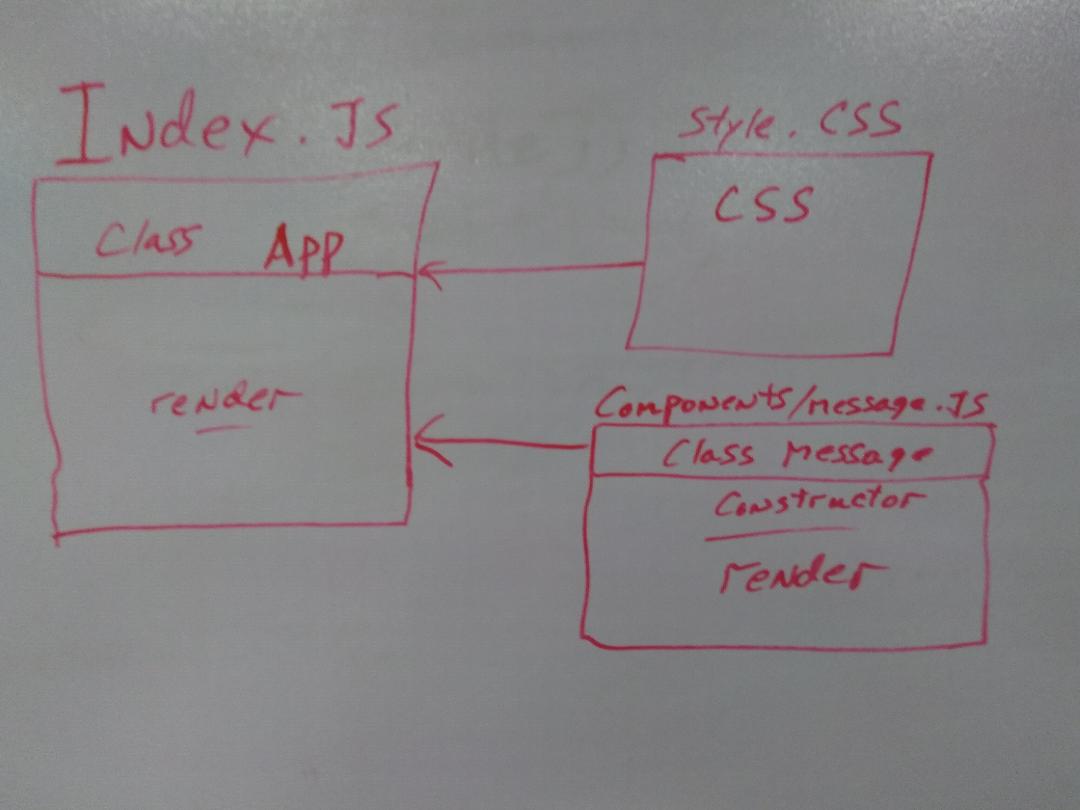 Index.JS
Class App
render
Style.CSS
CSS
Components/message.JS
Class Message
Constructor
render